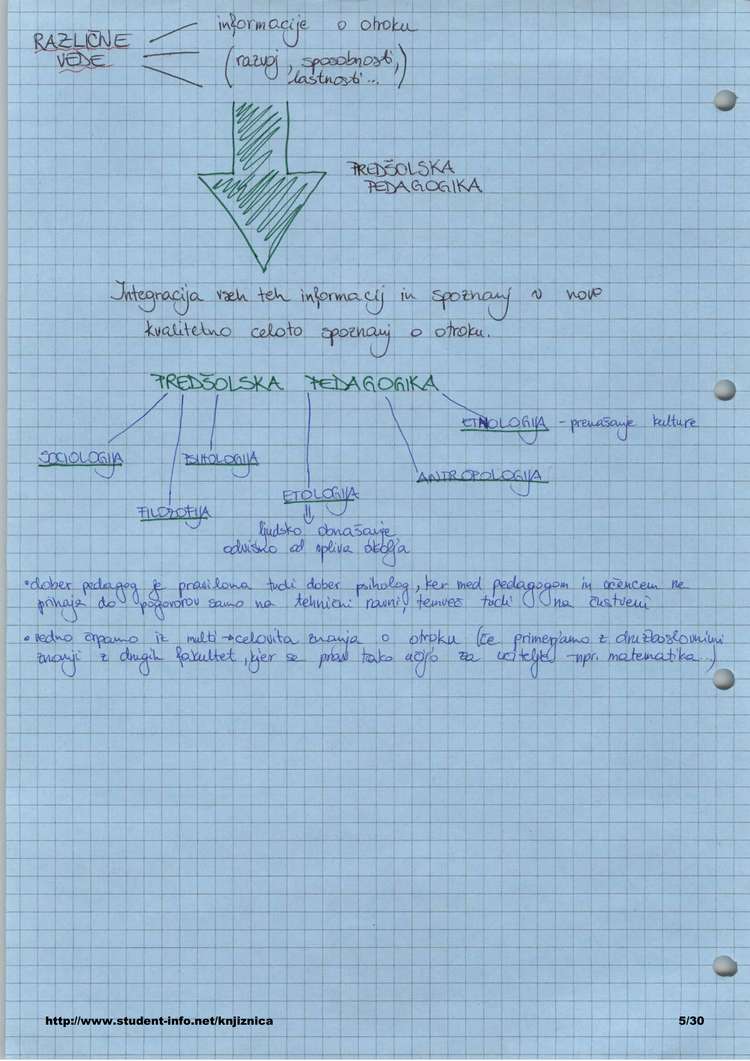 RAZLIČNE VEDE
informacije o otroku
(razvoj, sposobnosti,
lastnosti...)
PREDŠOLSKA
PEDAGOGIKA
Integracija vseh teh informacij in spoznanj v novo
kvalitetno celoto spoznanj o otroku.
PREDŠOLSKA PEDAGOGIKA
ETNOLOGIJA - prenašanje kulture
SOCIOLOGIJA
PSIHOLOGIJA
ANTROPOLOGIJA
ETOLOGIJA
FILOZOFIJA
ljudsko obnašanje
odvisno od vpliva okolja
• dober pedagog je praviloma tudi dober psiholog, ker med pedagogom in učencem ne
prihaja do pogovorov samo na tehnični ravni, temveč tudi na čustveni
• vedno črpamo iz multi → celovita znanja o otroku (če primerjamo z družboslovnimi
znanji z drugih fakultet, kjer se prav tako učijo za učitelje -npr. matematika..)
http://www.student-info.net/knjiznica
5/30